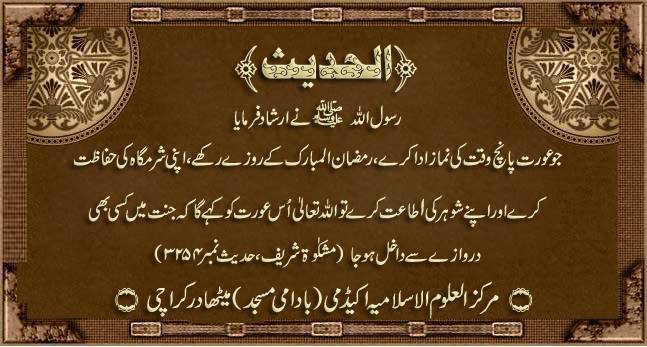 الحدیث
رسول اللہ ﷺ نے ارشاد فرمایا
جو عورت پانچ وقت کی نماز ادا کرے، رمضان المبارک کے روزے رکھے، اپنی شرمگاہ کی حفاظت
کرے اور اپنے شوہر کی اطاعت کرے تو اللہ تعالیٰ اُس عورت کو کہے گا کہ جنت میں کسی بھی
دروازے سے داخل ہو جا (مشکوٰۃ شریف، حدیث نمبر ۳۲۵۴)
مرکز العلوم الاسلامیہ اکیڈمی (بادامی مسجد) میٹھادر کراچی